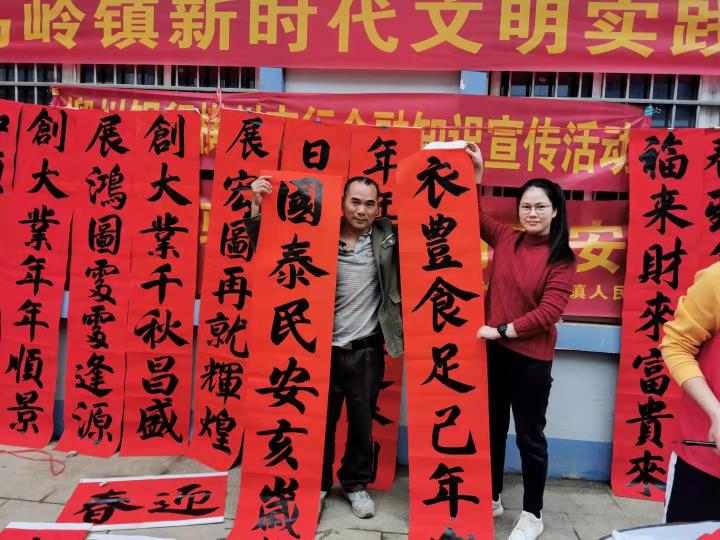 岭镇新时代文明实践
宣传活动
安
镇人民
創大業年年順景
展鴻圖處處逢源
創大業千秋昌盛
展宏圖再就輝煌
日
年
國泰民安亥歲
衣豐食足己年
福来財来富貴来
春
迎春